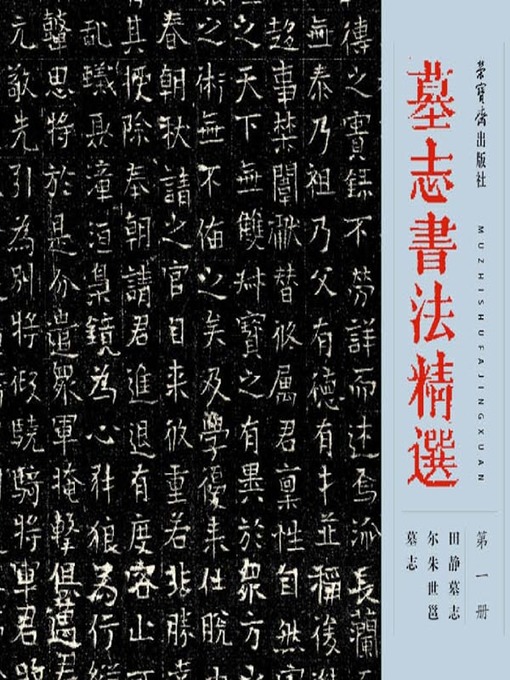 荣宝斋出版社
墓志書法精選
MUZHISHUFAJINGXUAN
第一册
田静墓志
尔朱世邕
墓志
傳之實錄不勞詳而述焉派長瀾
無泰乃祖乃父有德有才並稱後
超事禁闈獻替攸属君禀性自然
之天下無雙丱寶之有異於眾方
之術無不備之矣及學優来仕脫
春朝秋請之官自来攸重若非勝
其授除奉朝請君進退有度容止
亂蟻聚漳洹梟鏡為心豺狼為行
鼙思将於是分遣眾軍掩擊俱
元敬先引為別将俶驍騎将軍君